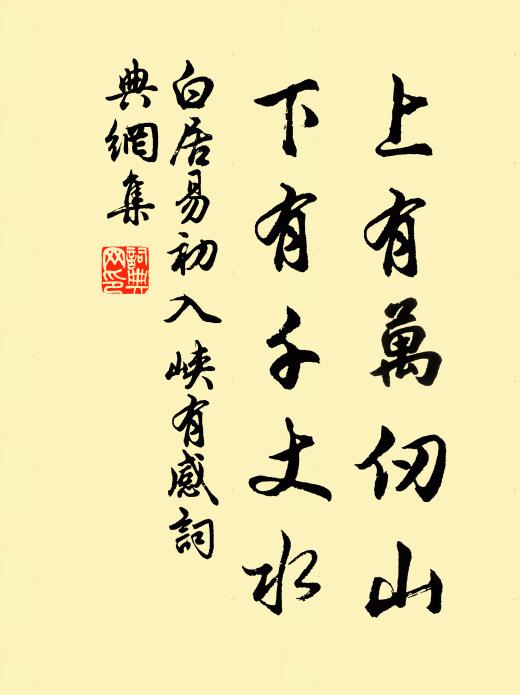 上有萬仞山
下有千丈水
白居易初入峽有感詞
典網集
詞典
网印